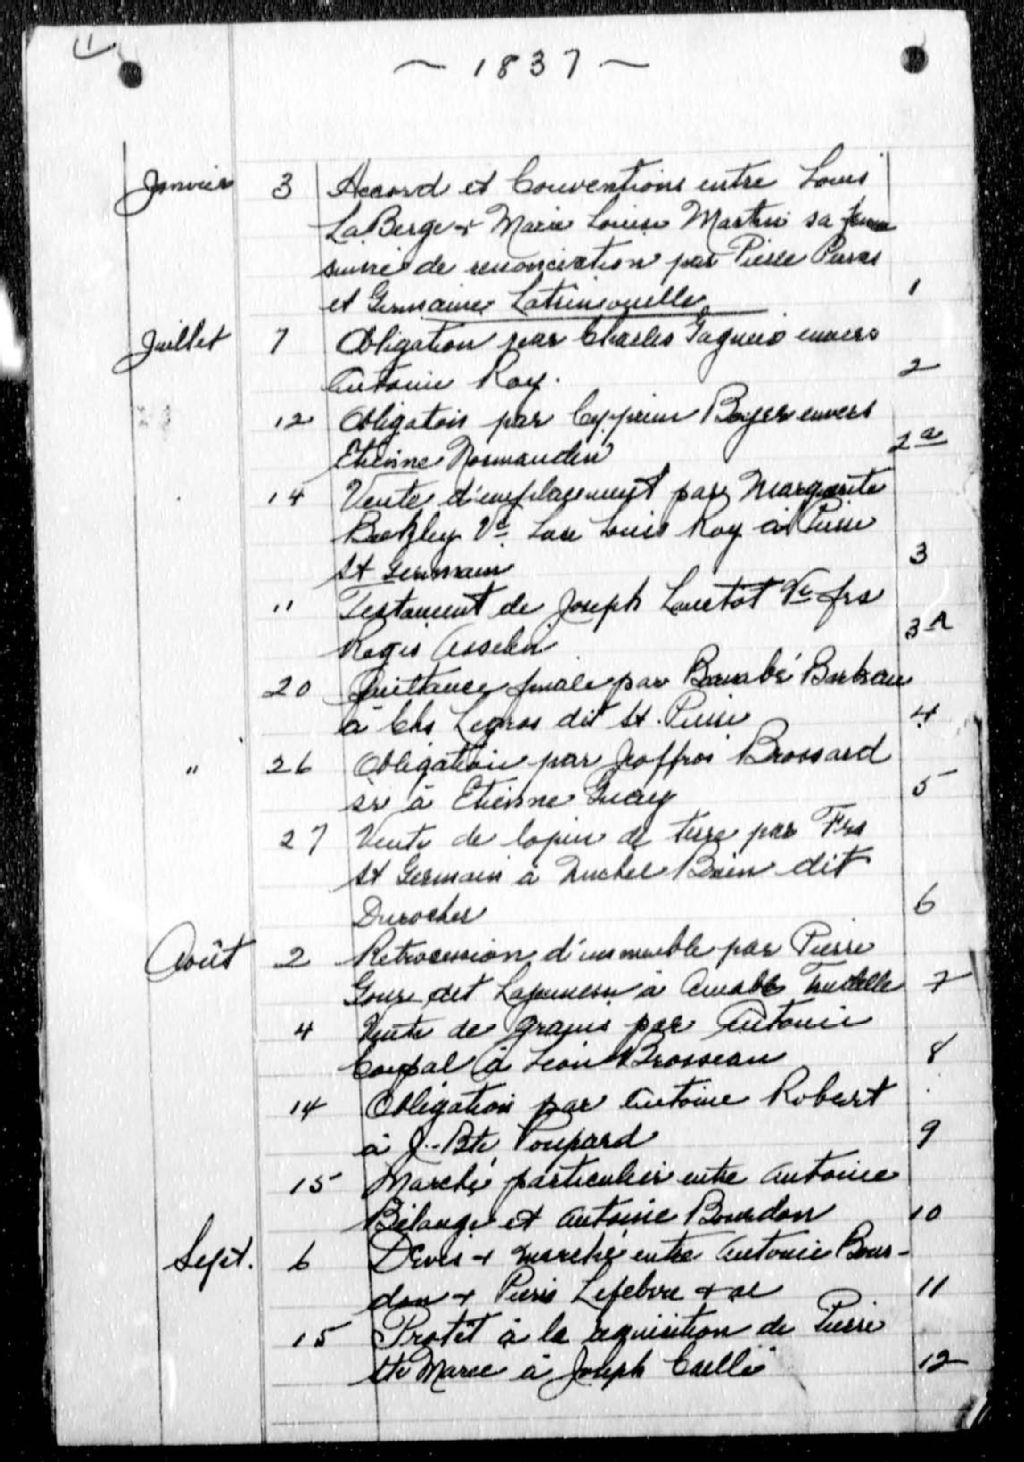 ~ 1837 ~
Janvier 3 Accord et Conventions entre Louis
LaBerge + Marie Louise Martin sa femme
suivie de renonciation par Pierre
et Germaine Latrimouille 1
Juillet 7 Obligation par Charles envers
Antoine Roy. 2
12 Obligation par Cyprien Boyer envers
Etienne Normandin 2a
14 Vente d'emplacement par Marguerite
Vė Louis Roy à Pierre
St Germain 3
" Testament de Joseph Lanctôt Ve frs
Regis Asselin 3A
20 Quittance finale par Barnabé Barbeau
à Chs Legros dit St. Pierre 4
" 26 Obligation par Joffroi Brossard
sr à Etienne 5
27 Vente de lopin de terre par Frs
St Germain à Michel Brien dit
Durocher 6
Août 2 Retrocession d'immeuble par Pierre
dit à Amable 7
4 Vente de grains par Antoine
Coupal à Léon Brosseau 8
14 Obligation par Antoine Robert
à J.-Bte Poupard 9
15 Marché particulier entre Antoine
Bélanger et Antoine Bourdon 10
Sept. 6 Devis + marché entre Antoine Bour-
don + Pierre Lefebvre + al 11
15 Protêt à la requisition de Pierre
Ste Marie à Joseph 12